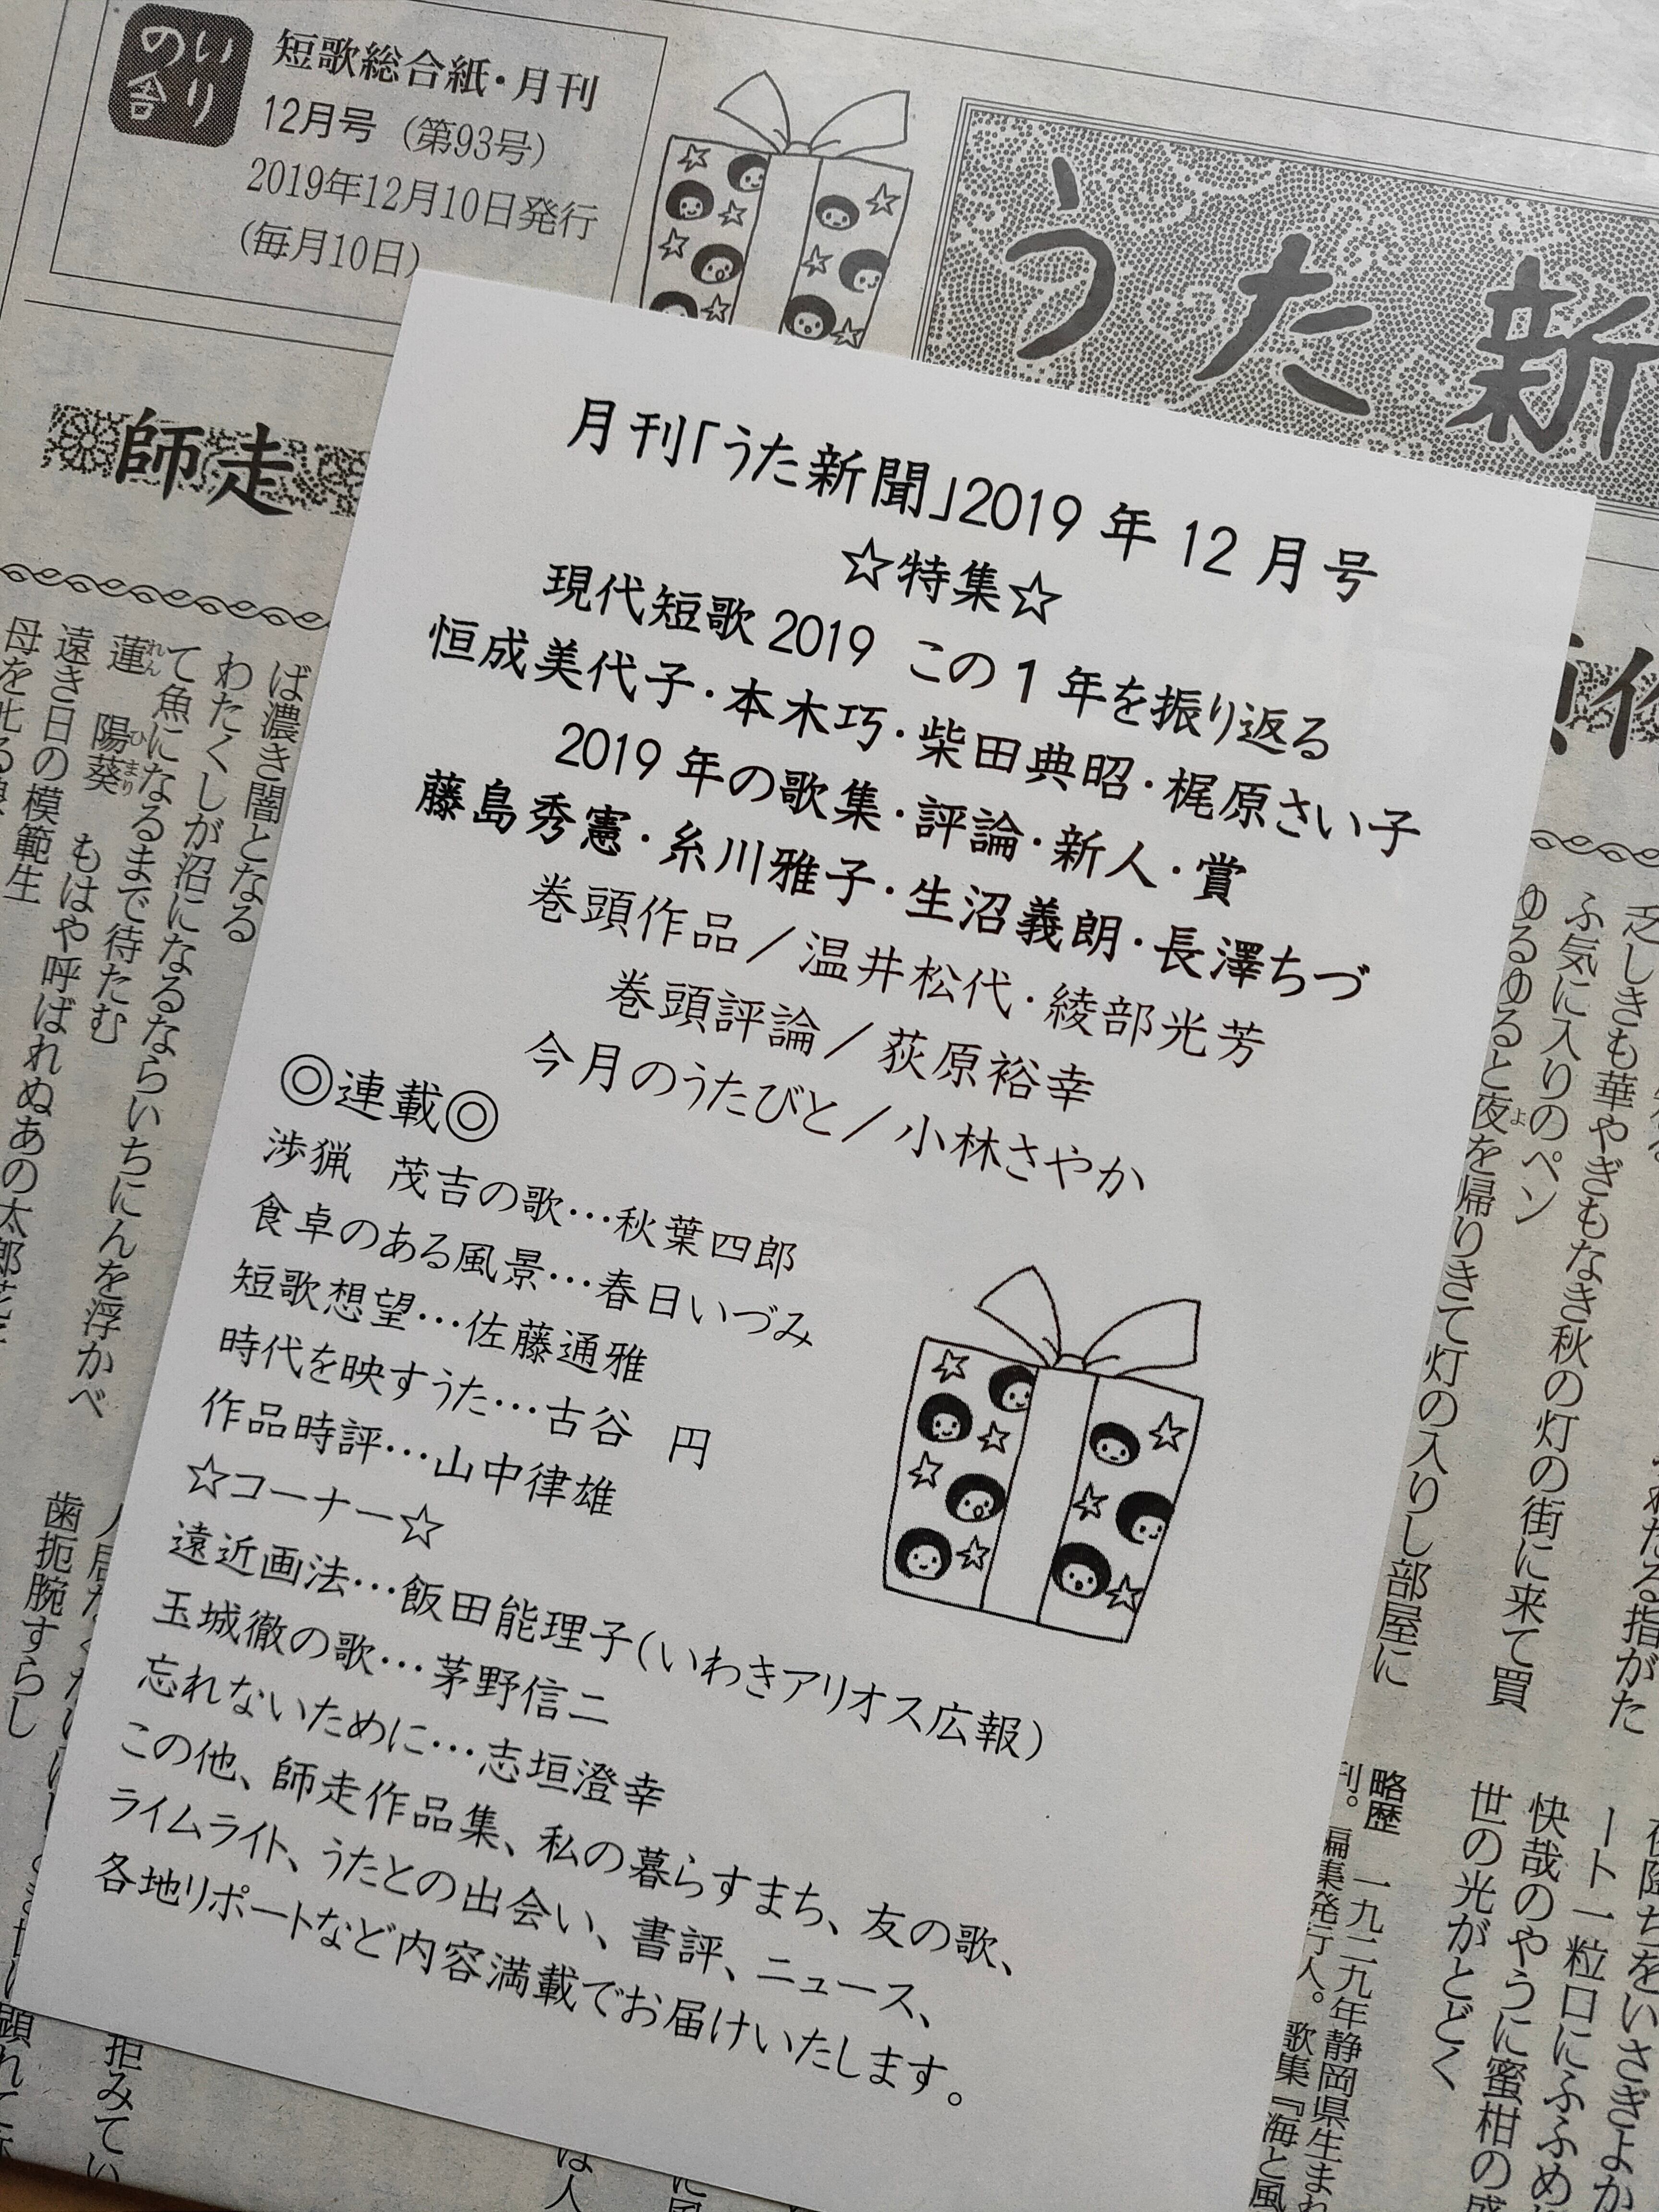 いりの舎
短歌総合紙・月刊
12月号（第93号）
2019年12月10日発行
（毎月10日）
うた新
師走
ば濃き闇となる
わたくしが沼になるならいちにんを浮かべ
て魚になるまで待たむ
蓮れん 陽葵ひまり もはや呼ばれぬあの太郎花子
遠き日の模範生
歯扼腕すらし
月刊「うた新聞」2019年12月号
☆特集☆
現代短歌2019 この1年を振り返る
恒成美代子・本木巧・柴田典昭・梶原さい子
2019年の歌集・評論・新人・賞
藤島秀憲・糸川雅子・生沼義朗・長澤ちづ
巻頭作品／温井松代・綾部光芳
巻頭評論／荻原裕幸
今月のうたびと／小林さやか
◎連載◎
渉猟 茂吉の歌…秋葉四郎
食卓のある風景…春日いづみ
短歌想望…佐藤通雅
時代を映すうた…古谷 円
作品時評…山中律雄
☆コーナー☆
遠近画法…飯田能理子(いわきアリオス広報)
玉城徹の歌…茅野信二
忘れないために…志垣澄幸
この他、師走作品集、私の暮らすまち、友の歌、
ライムライト、うたとの出会い、書評、ニュース、
各地リポートなど内容満載でお届けいたします。
乏しきも華やぎもなき秋の灯の街に来て買
ふ気に入りのペン
ゆるゆると夜よを帰りきて灯の入りし部屋に
快哉のやうに蜜柑の
世の光がとどく
略歴 一九二九年静岡県生まれ
刊。編集発行人。歌集『海と風